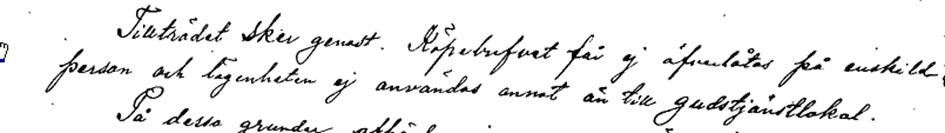 Tillträdet sker genast. Köpebrefvet får ej öfverlåtas på enskild
person och lägenheten ej användas annat än till gudstjänstlokal.
På dessa grunder